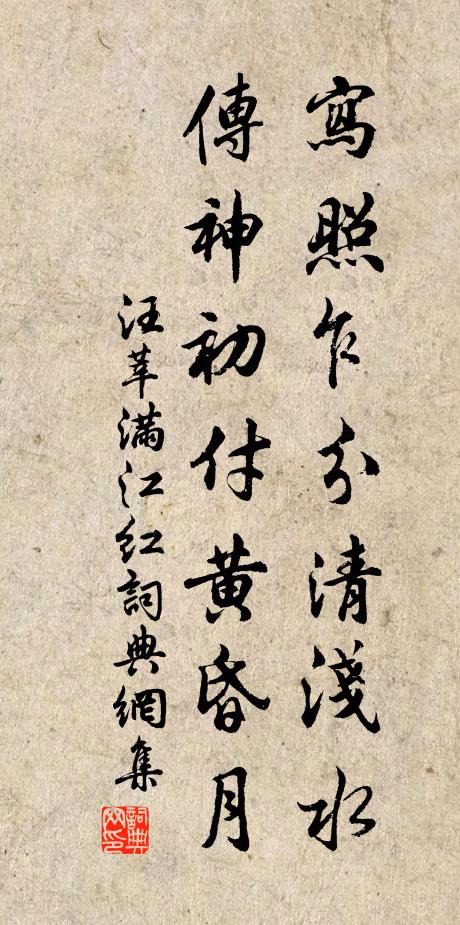 寫照乍分清淺水
傳神初付黃昏月
汪莘滿江紅詞典網集
詞典网印